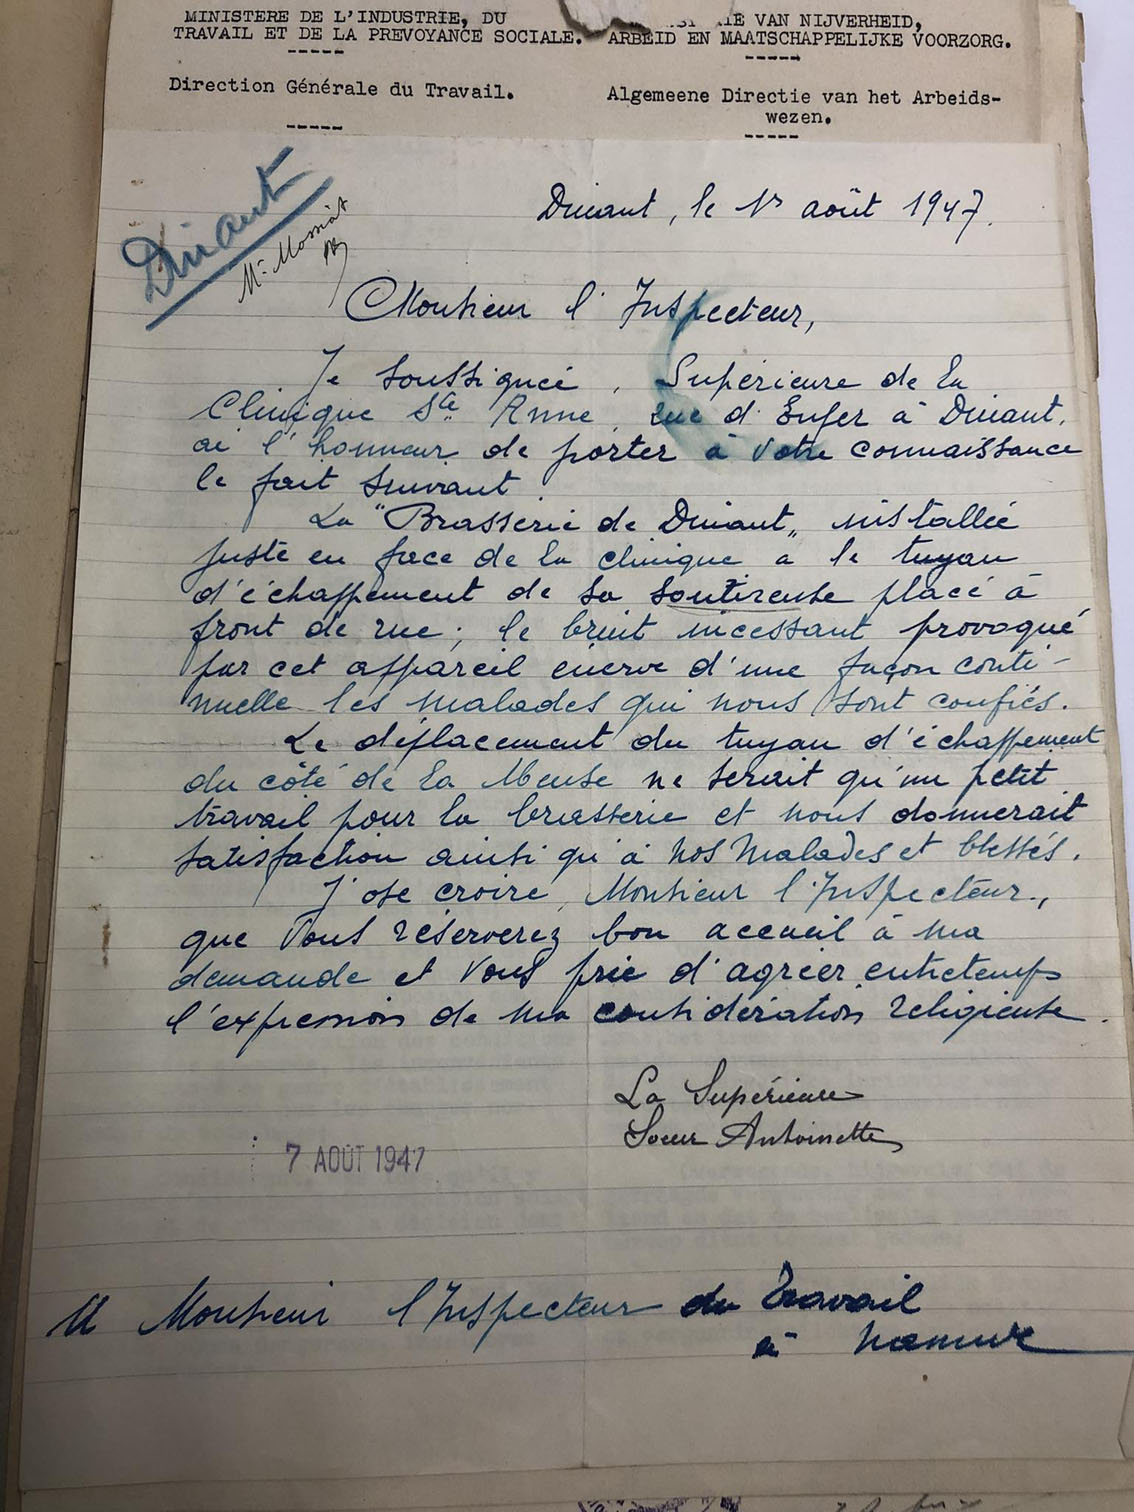 MINISTERE DE L'INDUSTRIE, DU
TRAVAIL ET DE LA PREVOYANCE SOCIALE.
-----
Direction Générale du Travail.
-----
IE VAN NIJVERHEID,
ARBEID EN MAATSCHAPPELIJKE VOORZORG.
-----
Algemeene Directie van het Arbeids-
wezen.
-----
Dinant
Mr
Dinant, le 1r août 1947.
Monsieur l'Inspecteur,
Je soussignée, Supérieure de la
Clinique Ste Anne, rue d'Enfer à Dinant,
ai l'honneur de porter à votre connaissance
le fait suivant.
La "Brasserie de Dinant" installée
juste en face de la clinique a le tuyau
d'échappement de sa soutireuse placé à
front de rue; le bruit incessant provoqué
par cet appareil énerve d'une façon conti-
nuelle les malades qui nous sont confiés.
Le déplacement du tuyau d'échappement
du côté de la Meuse ne serait qu'un petit
travail pour la brasserie et nous donnerait
satisfaction ainsi qu'à nos malades et blessés.
J'ose croire, Monsieur l'Inspecteur,
que vous réserverez bon accueil à ma
demande et vous prie d'agréer entretemps
l'expression de ma considération religieuse.
La Supérieure
Soeur Antoinette
7 AOUT 1947
A Monsieur l'Inspecteur du Travail
à Namur